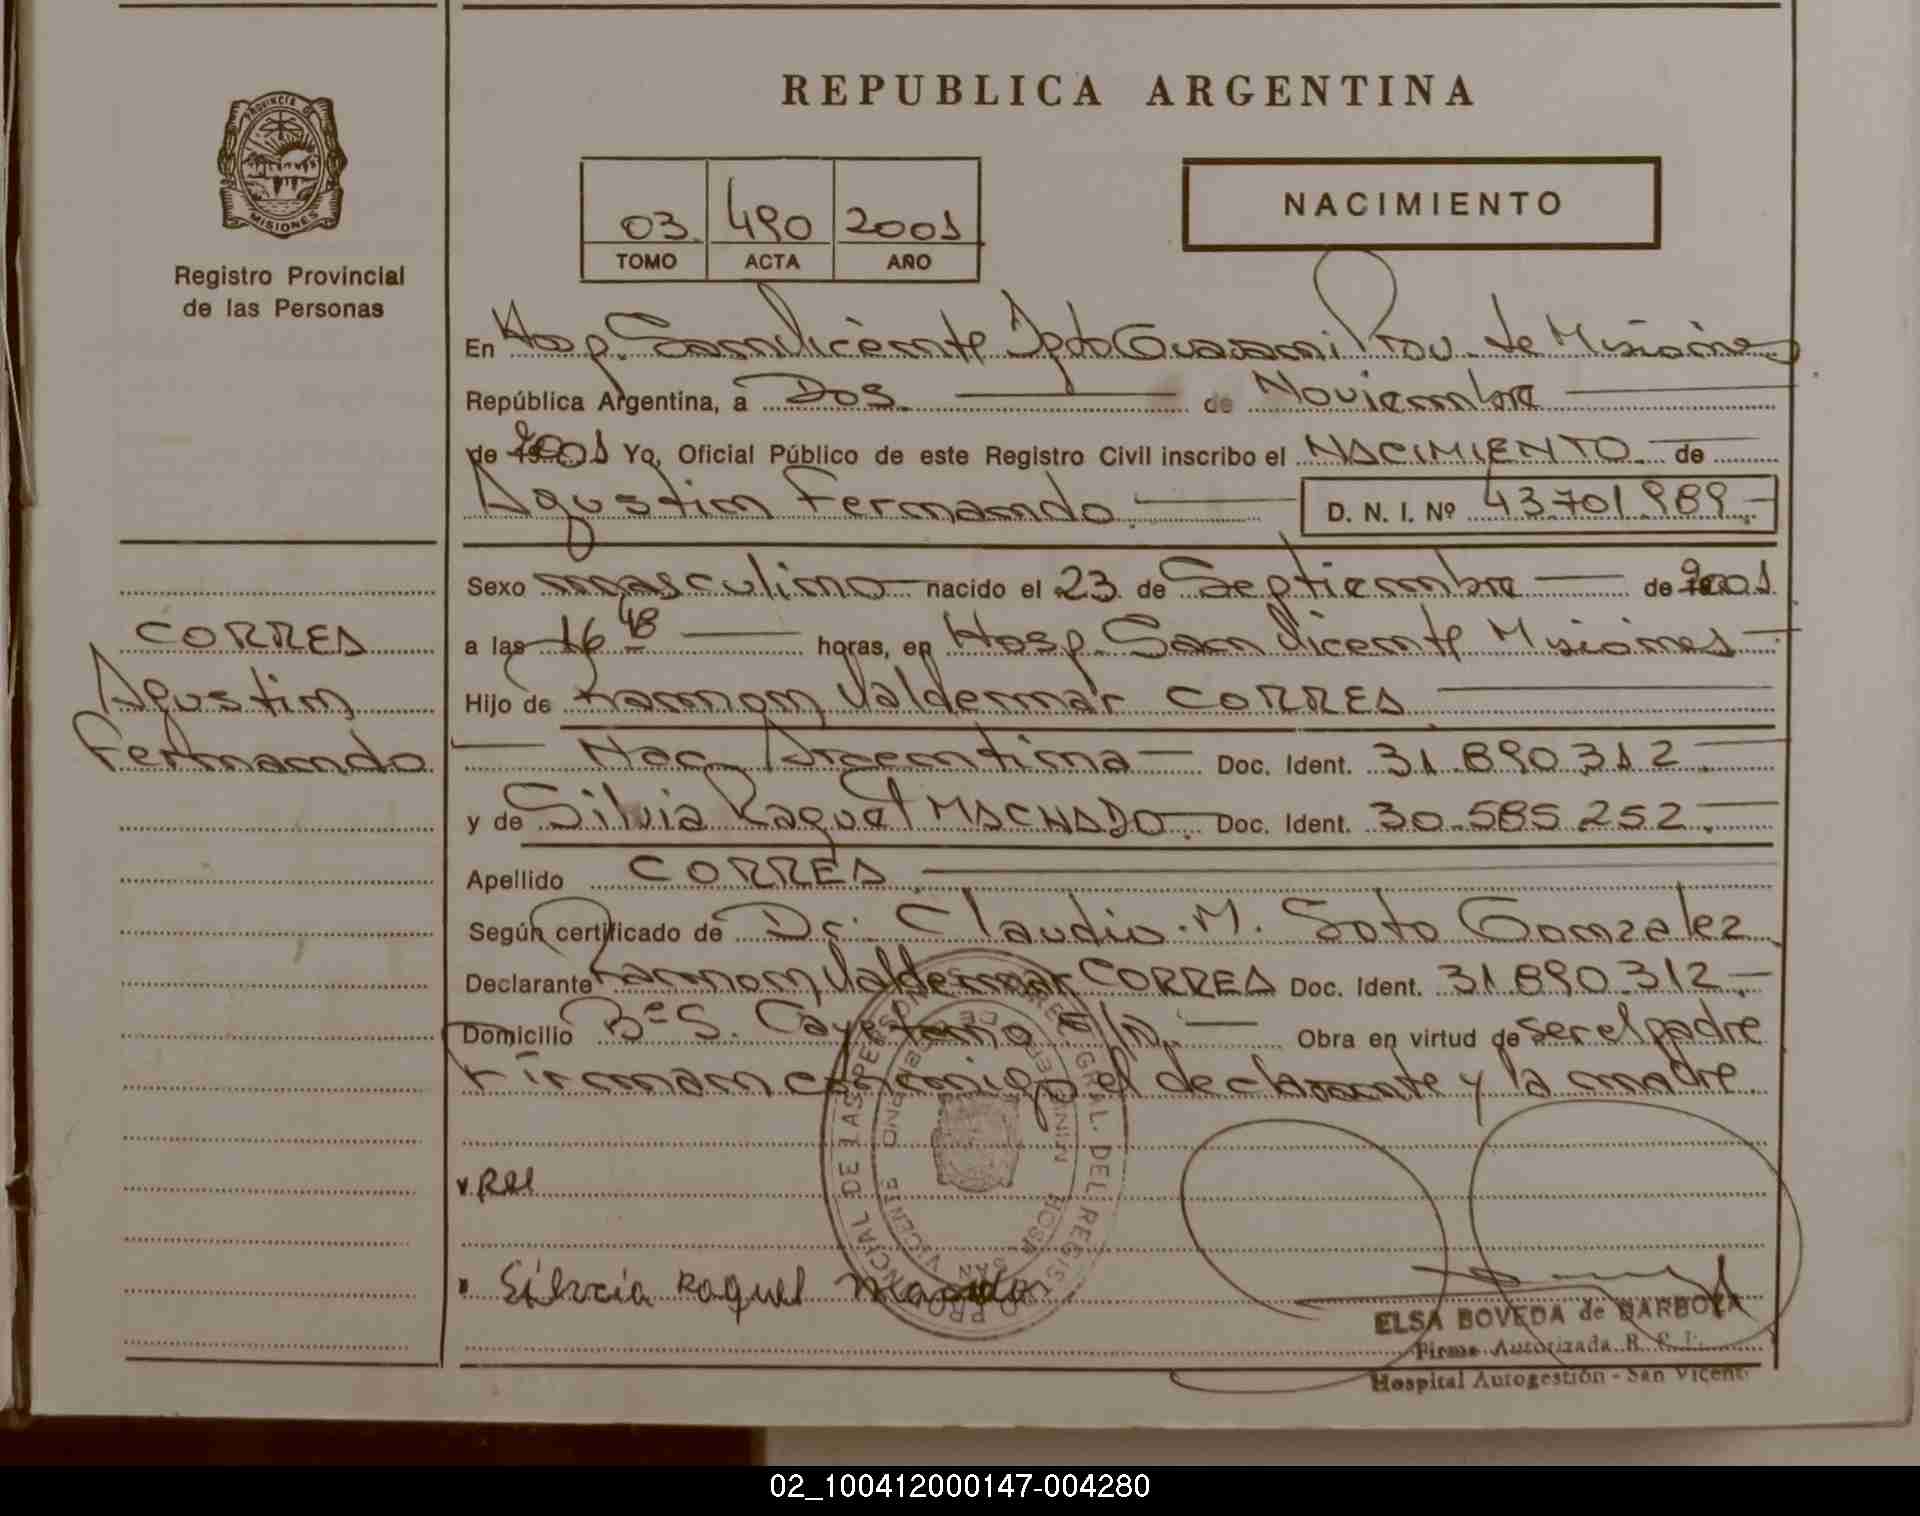 REPUBLICA ARGENTINA
PROVINCIA DE
MISIONES
Registro Provincial
de las Personas
03 490 2001
TOMO ACTA AÑO
NACIMIENTO
En Hosp. San Vicente Dpto Guarani Prov. de Misiones
República Argentina, a Dos de Noviembre
de 2001 Yo, Oficial Público de este Registro Civil inscribo el NACIMIENTO de
Agustin Fernando D. N. I. Nº 43.701.989
CORREA
Agustin
Fernando
Sexo masculino nacido el 23 de Septiembre de 2001
a las 16 48 horas, en Hosp. San Vicente Misiones
Hijo de Ramon Valdemar CORREA
Nac Argentina Doc. Ident. 31.890.312
y de Silvia Raquel MACHADO Doc. Ident. 30.585.252
Apellido CORREA
Según certificado de Dr. Claudio M. Soto Gonzalez
Declarante Ramon Valdemar CORREA Doc. Ident. 31.890.312
Domicilio Bº S. Cayetano S/N. Obra en virtud de ser el padre
Firman conmigo el declarante y la madre
Silvia Raquel
PROVINCIAL DE LAS GRAL. DEL
HOSP. SAN VICENTE
ELSA BOVEDA de BARBOZA
Firma Autorizada
Hospital Autogestión - San Vicente
02_100412000147-004280